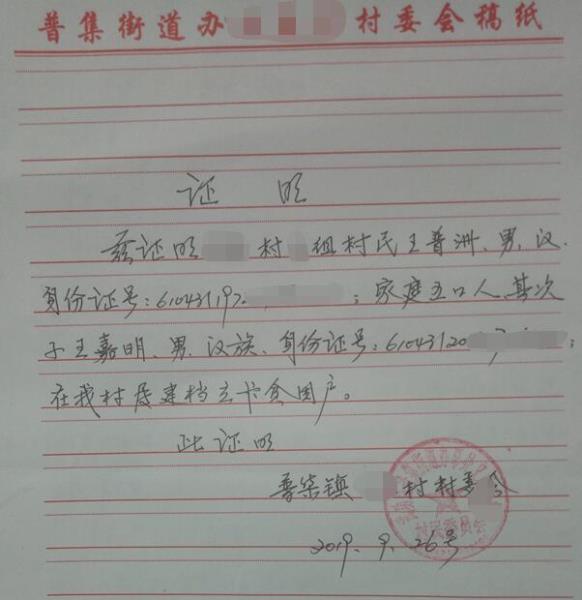 普集街道办 村委会稿纸
证 明
兹证明 村 组村民王普洲、男、汉
身份证号:61043119 ;家庭五口人、其次
子王嘉明、男、汉族、身份证号:61043120 ;
在我村属建档立卡贫困户。
此证明
普集镇 村村委会
村民委员会
2019.9.26号